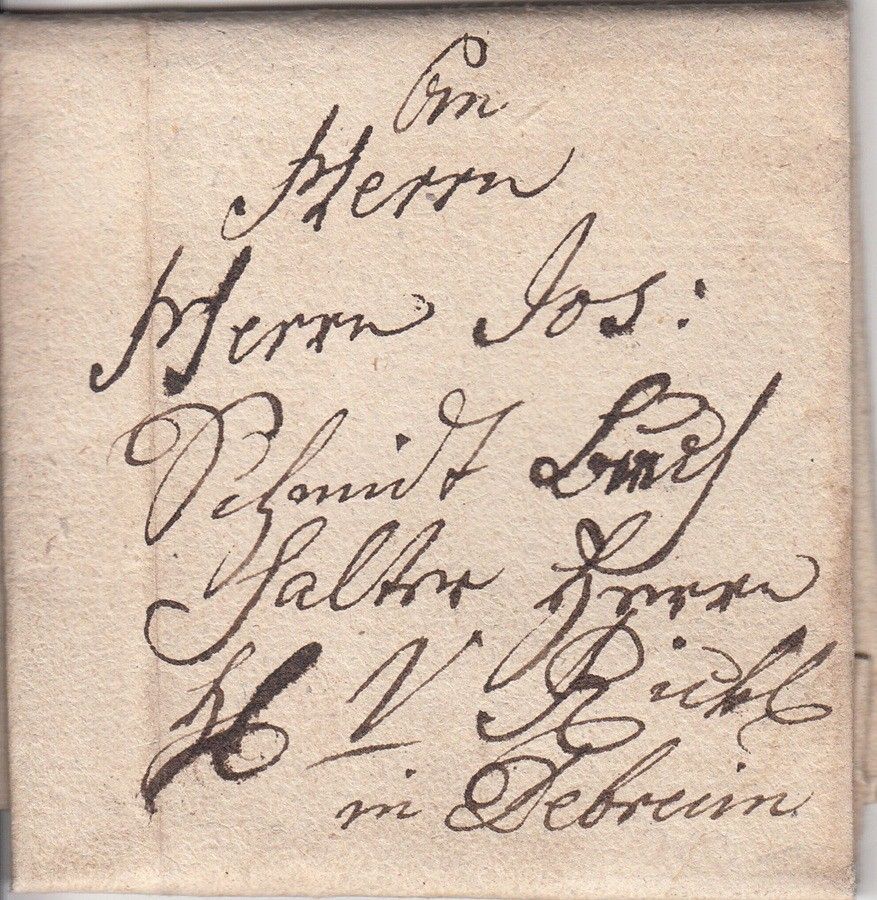 An
Herrn
Herrn Jos:
Schmidt Buch
halter Herrn
H V Rickl
in Debreczin